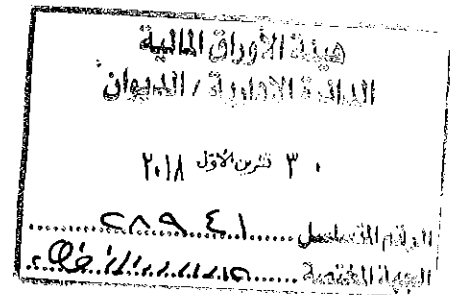 هيئة الأوراق المالية
الدائرة الادارية / الديوان
٣٠ تشرين الأول ٢٠١٨
الرقم المتسلسل ٢٨٩٤١
الجهة المختصة